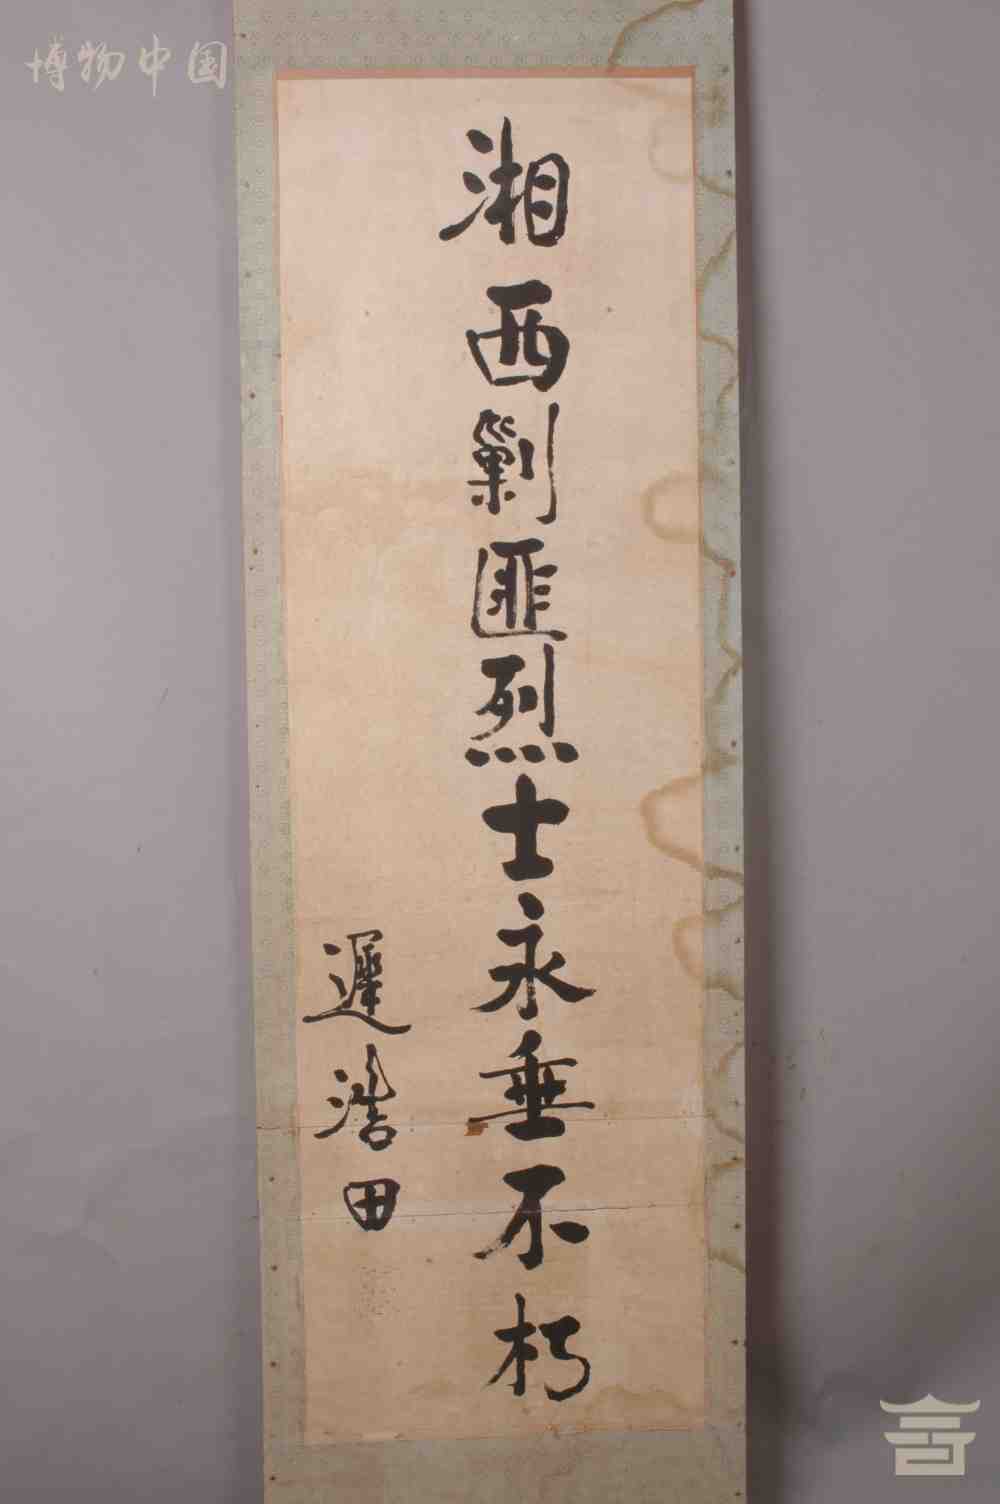 博物中国
湘西剿匪烈士永垂不朽
遲浩田